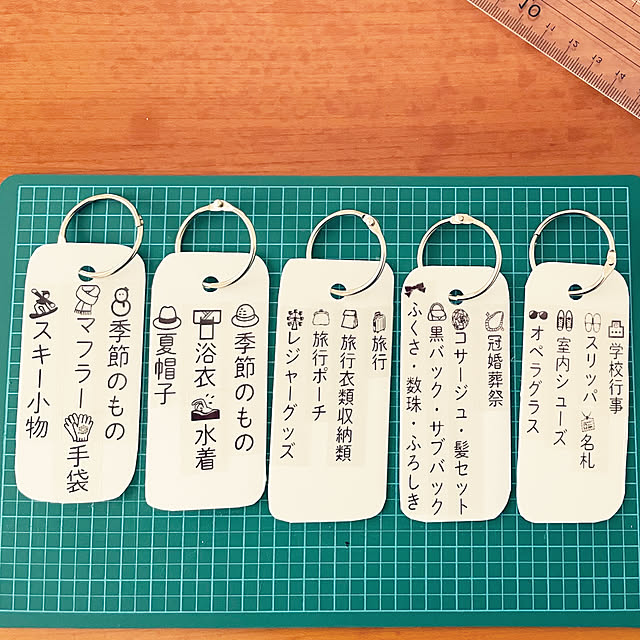 季節のもの
マフラー 手袋
スキー小物
季節のもの
浴衣 水着
夏帽子
旅行
旅行衣類収納類
旅行ポーチ
レジャーグッズ
冠婚葬祭
コサージュ・髪セット
黒バック・サブバック
ふくさ・数珠・ふろしき
学校行事
スリッパ 名札
室内シューズ
オペラグラス
10 11 12 13 14